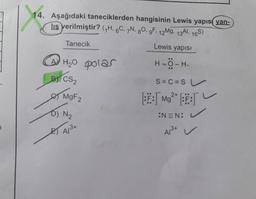 14. Aşağıdaki taneciklerden hangisinin Lewis yapısı yan-
lış verilmiştir? (₁H, ₆C, ₇N, ₈O, ₉F, ₁₂Mg, ₁₃Al, ₁₆S)
Tanecik Lewis yapısı
A) H₂O polar H – Ö – H
B) CS₂ S = C = S
C) MgF₂ [:F:]⁻ Mg²⁺ [:F:]⁻
D) N₂ :N ≡ N:
E) Al³⁺ Al³⁺